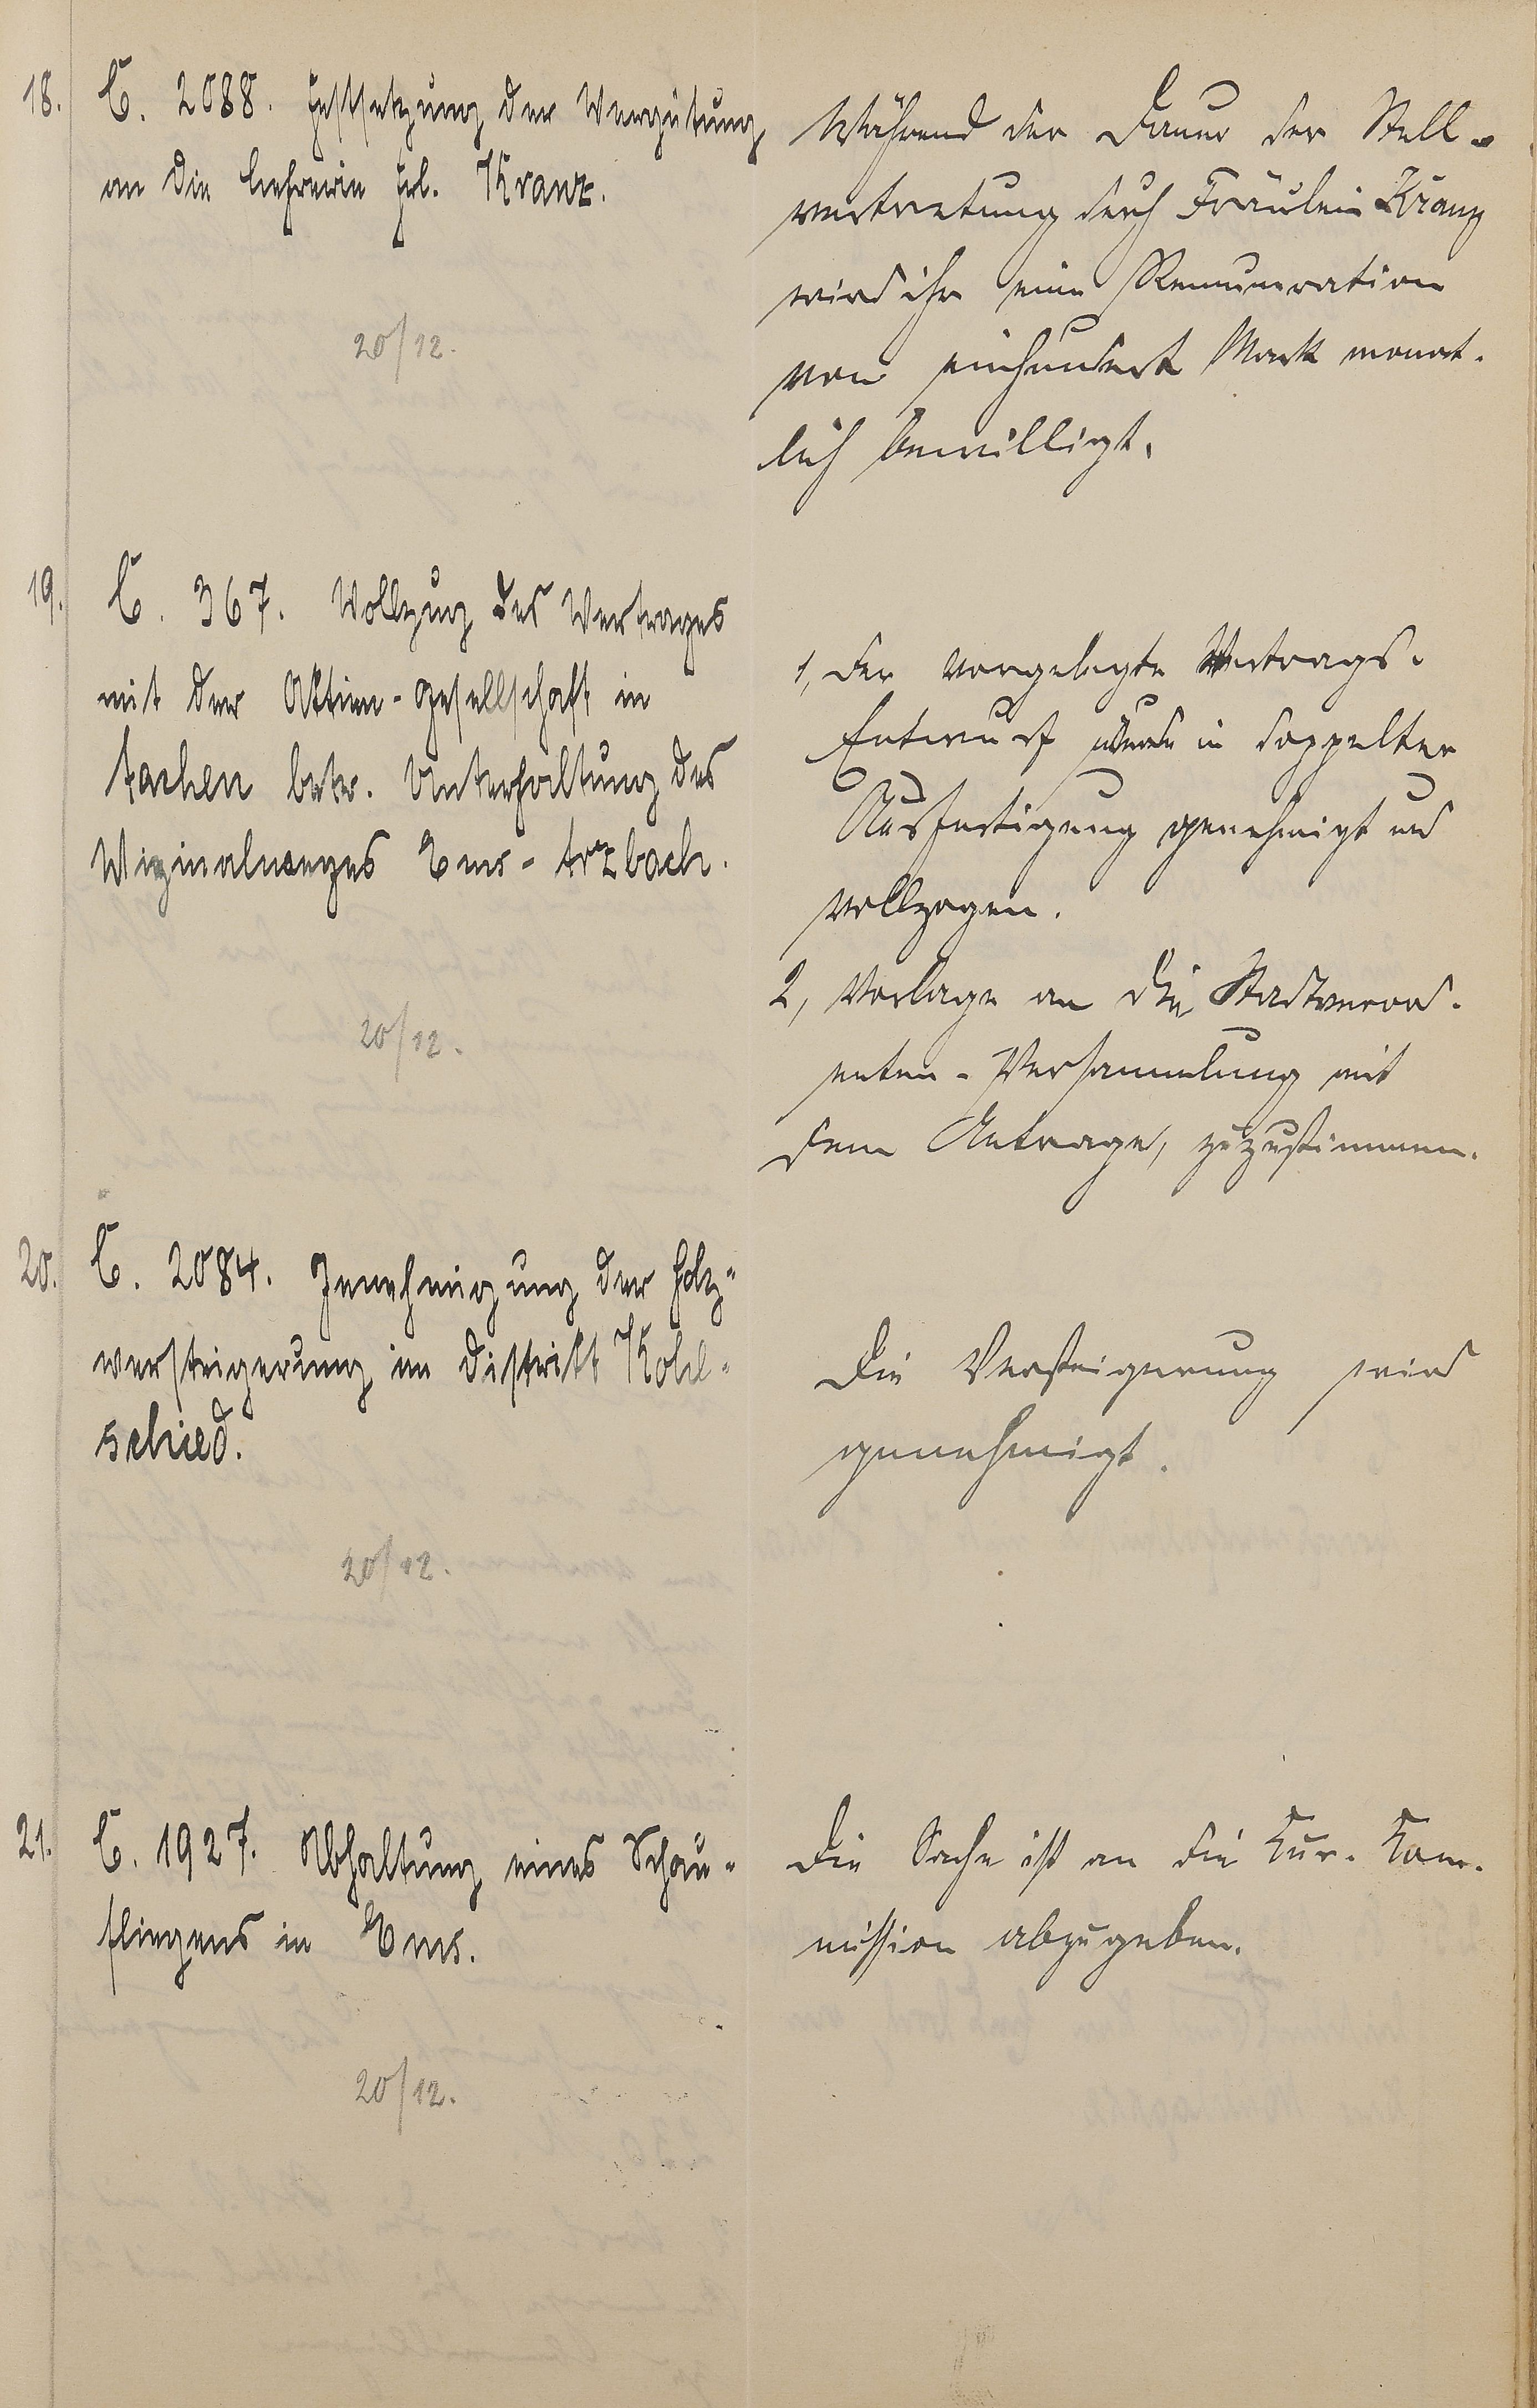 18. C. 2088. Festsetzung der Vergütung
an die Lehrerin Frl. Kranz.
20/12.
Während der Dauer der Stell-
vertretung durch Fräulein Kranz
wird ihr eine Remuneration
von einhundert Mark monat-
lich bewilligt.
19. C. 367. Vollzug des Vertrages
mit der Aktien-Gesellschaft in
Aachen betr. Unterhaltung des
Vizinalweges Ems-Arzbach.
20/12.
1, Der vorgelegte Vertrags-
Entwurf wurde in doppelter
Ausfertigung genehmigt und
vollzogen.
2, Vorlage an die Stadtverord-
neten-Versammlung mit
dem Antrage, zuzustimmen.
20. C. 2084. Genehmigung der Holz-
versteigerung im Distrikt Kohl-
schied.
20/12.
Die Versteigerung wird
genehmigt.
21. C. 1927. Abhaltung eines Schau-
fliegens in Ems.
20/12.
Die Sache ist an die Kur-Kom-
mission abzugeben.